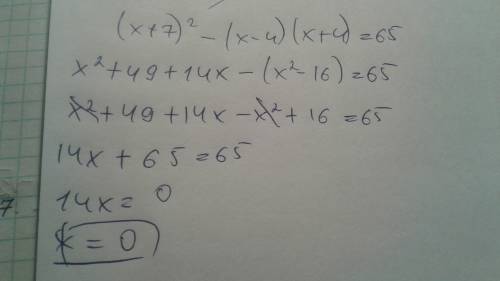 (x+7)² - (x-4)(x+4)=65
x²+49+14x-(x²-16)=65
x²+49+14x-x²+16=65
14x+65=65
14x=0
x=0
7